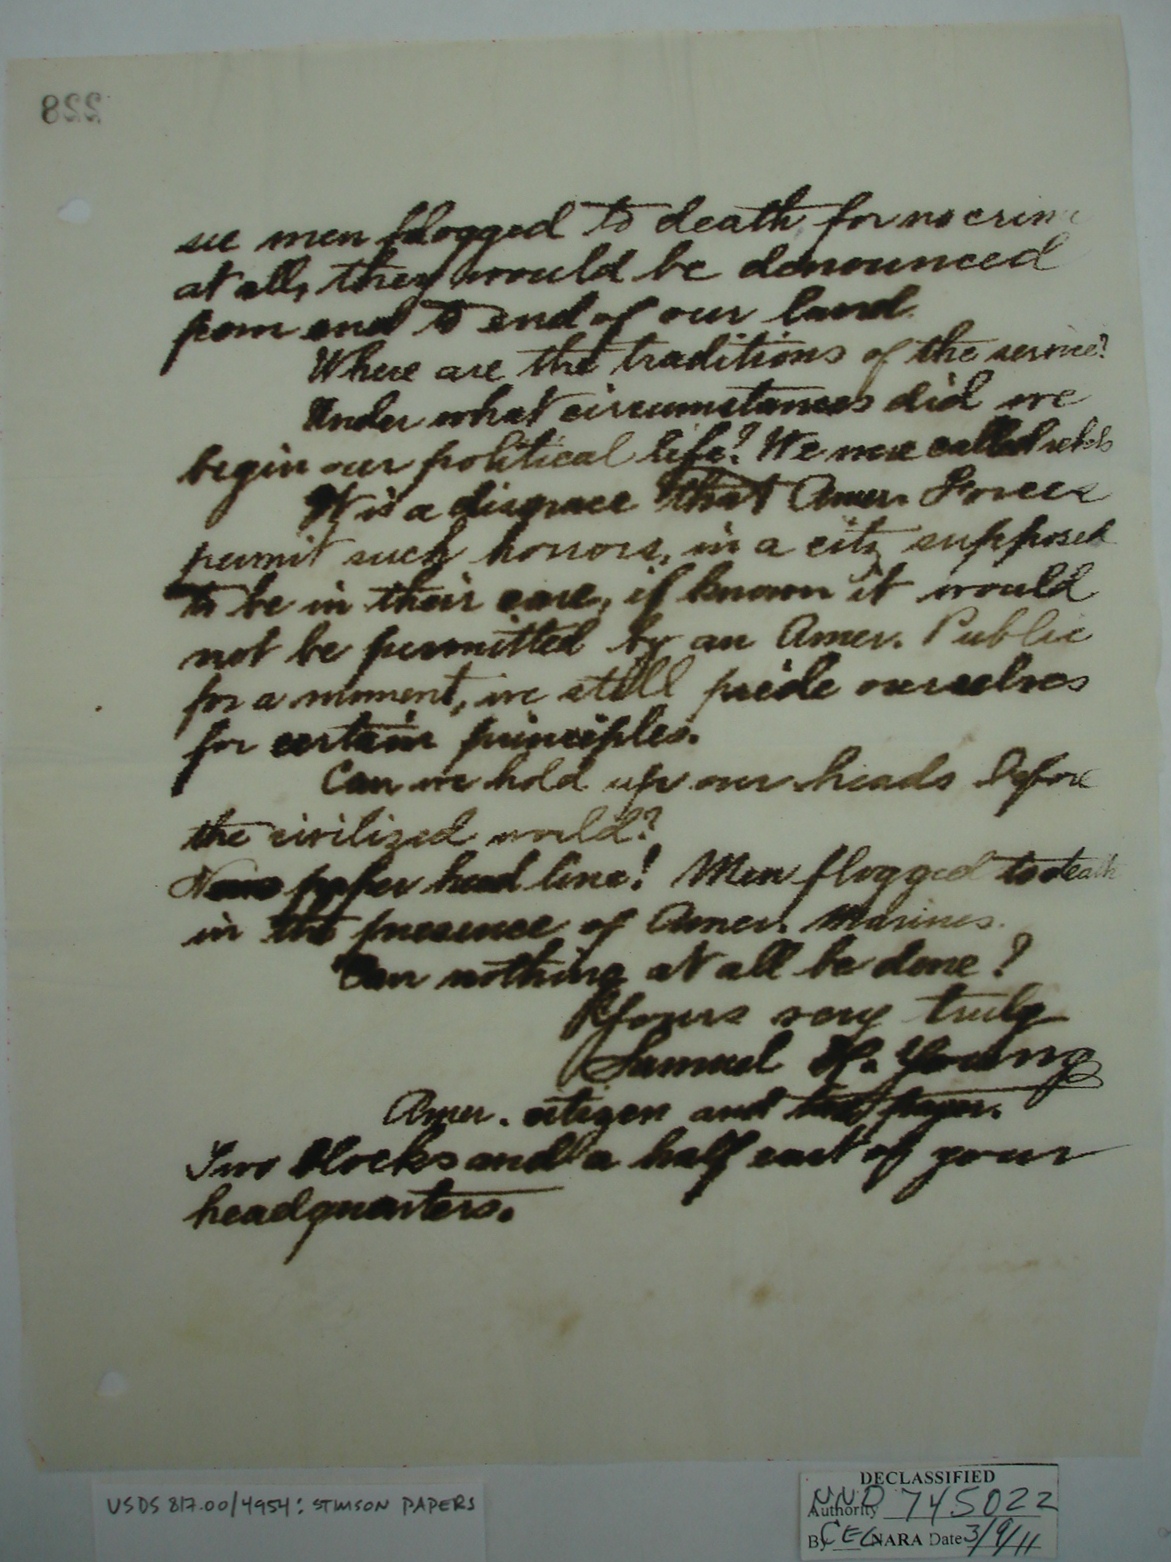 228
see men flogged to death, for no crime
at all, they would be denounced
from end to end of our land.
Where are the traditions of the service?
Under what circumstances did we
begin our political life? We were called rebels
It is a disgrace that Amer. Forces
permit such horrors, in a city supposed
to be in their care, if known it would
not be permitted by an Amer. Public
for a moment, we still pride ourselves
for certain principles.
Can we hold up our heads before
the civilized world?
News paper head line! Men flogged to death
in the presence of Amer. Marines.
Can nothing at all be done?
Yours very truly
Samuel H. Young
Amer. citizen and tax payer.
Two blocks and a half east of your
headquarters.
USDS 817.00/4954: STIMSON PAPERS
DECLASSIFIED
Authority NND 745022
By CEC NARA Date 3/9/11